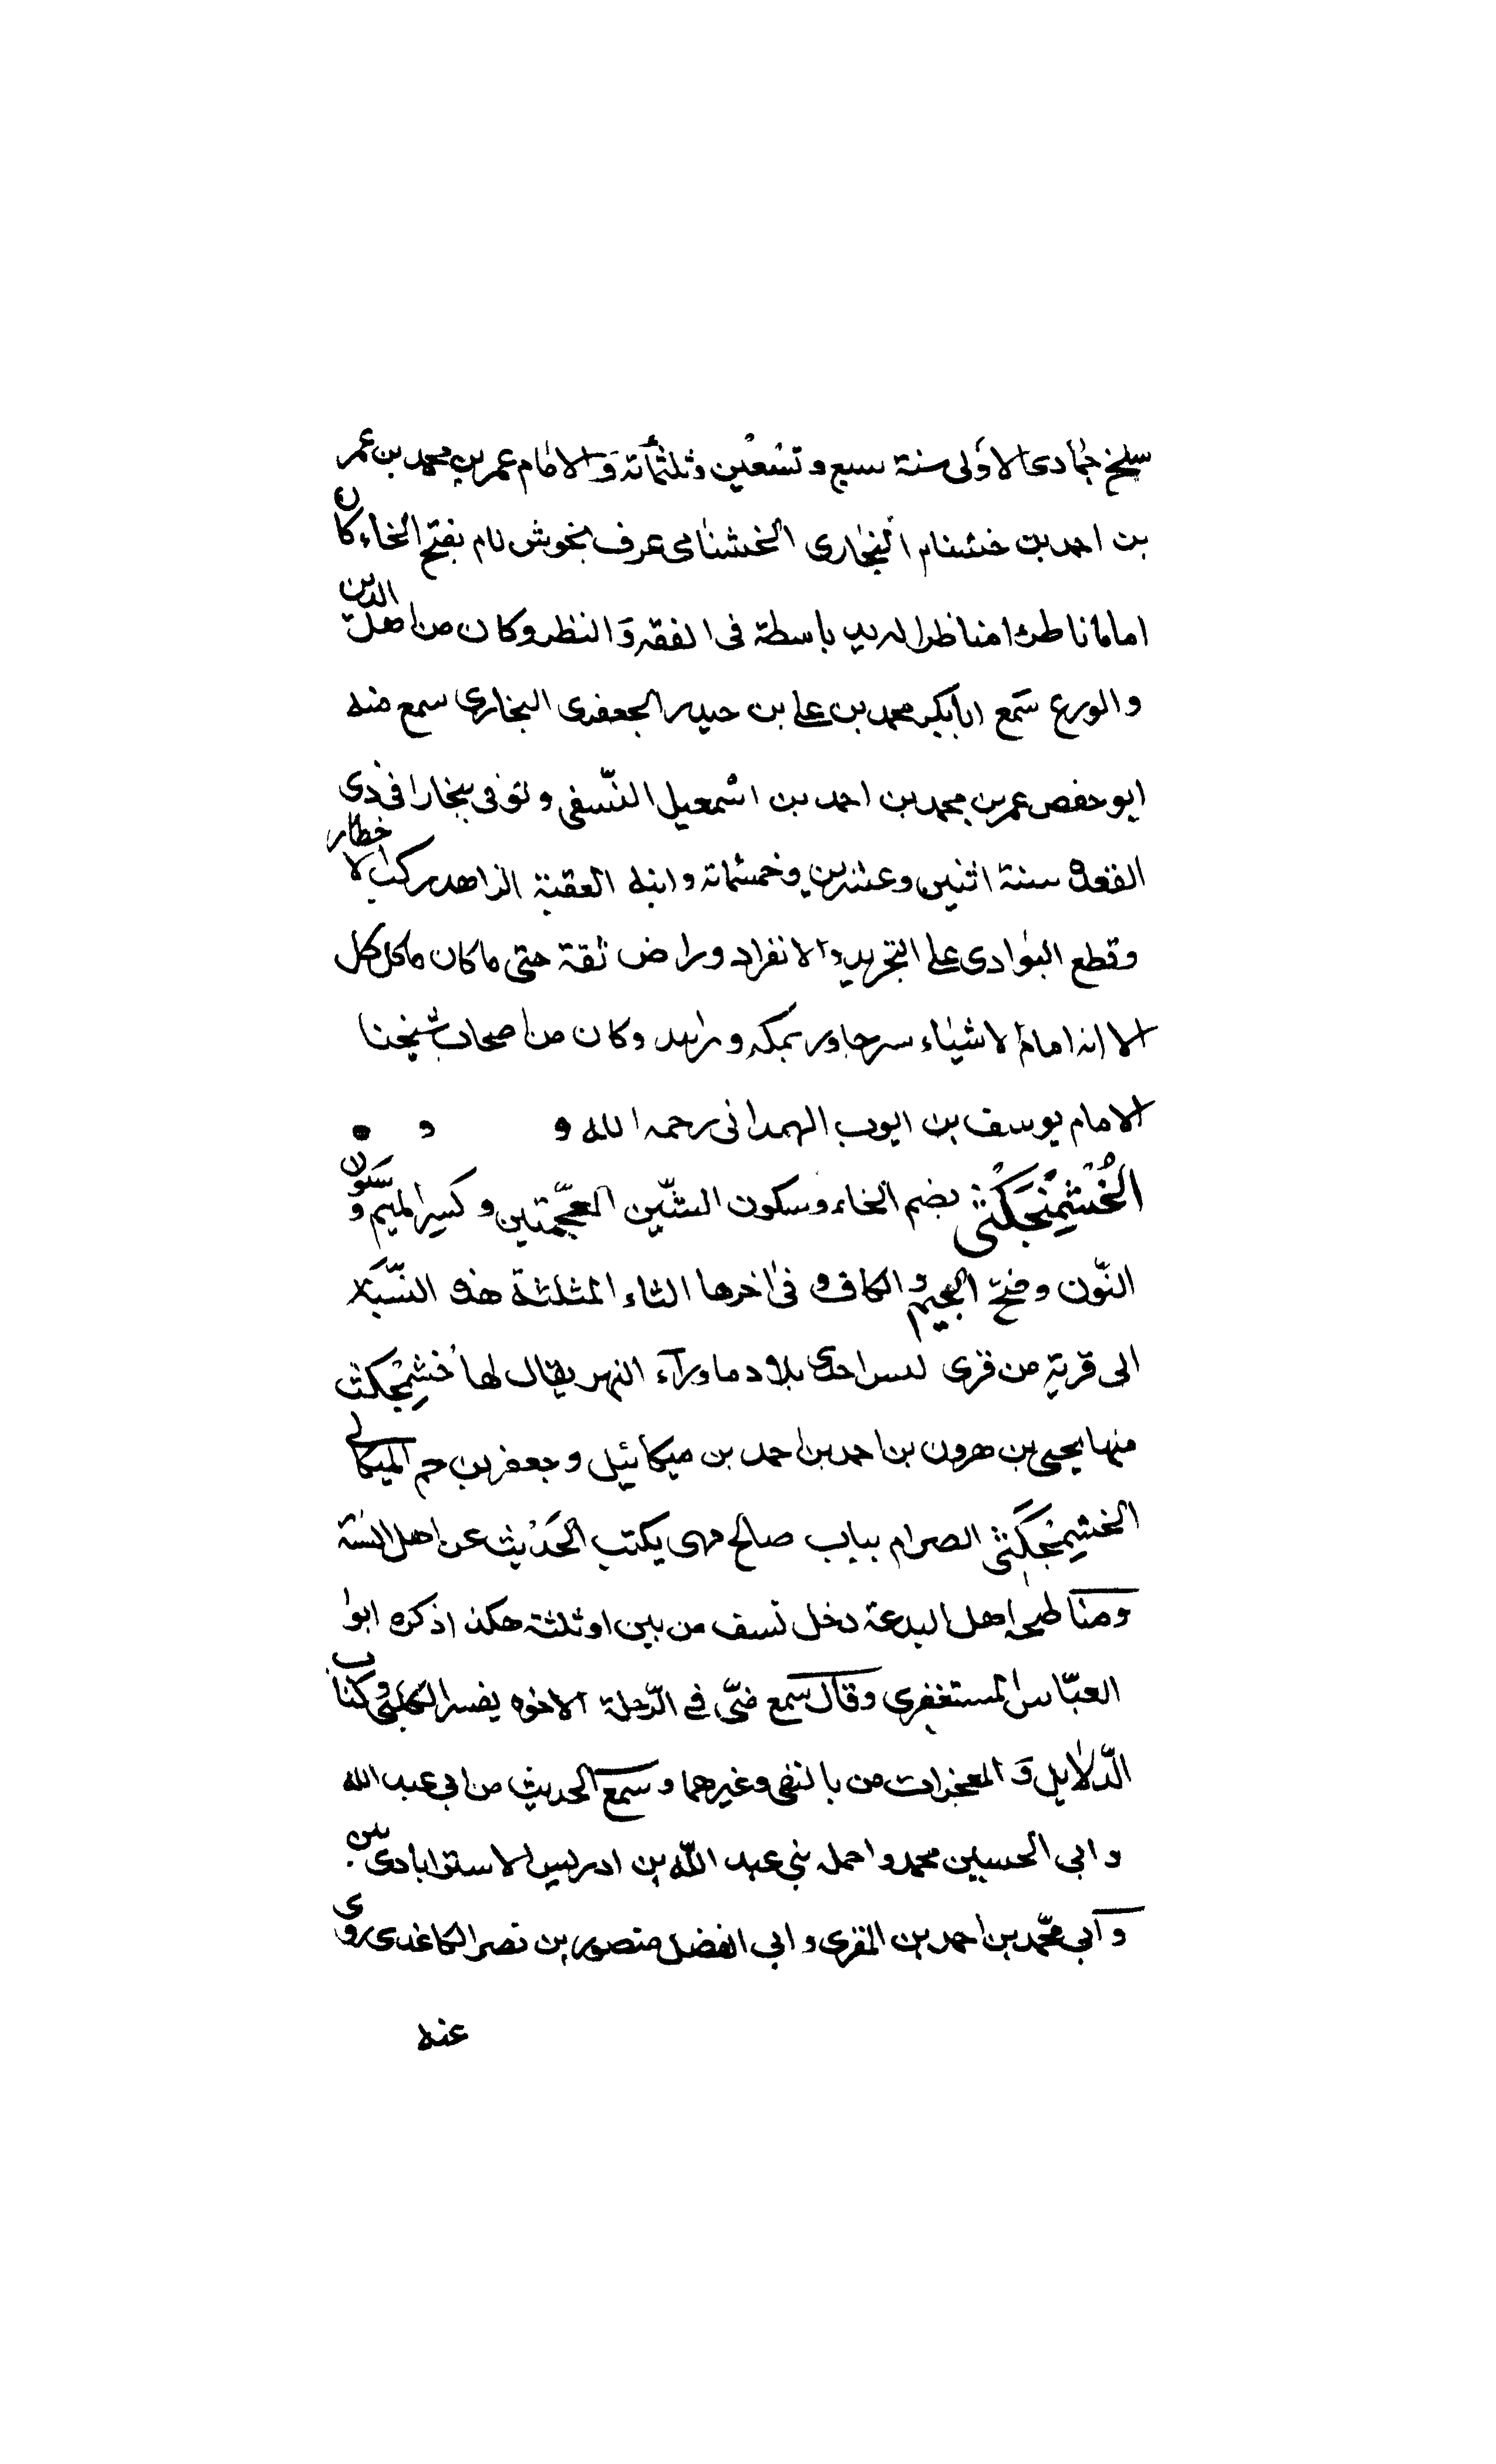 سلخ جمادى الاولى سنة سبع وتسعين وثلثمائة والامام عمر بن محمد بن عمر
بن احمد بن خشنام البخارى الخشنامى عرف بخوش نام بفتح الخاء كان
اماما مناظرا له يد باسطة فى الفقه والنظر وكان من اهل الدين
والورع سمع ابا بكر محمد بن على بن حيدر الجعفرى البخارى سمع منه
ابو حفص عمر بن محمد بن احمد بن اسمعيل النسفى وتوفى ببخارا فى ذى
القعدة سنة اثنين وعشرين وخمسمائة وابنه الفقيه الزاهد ركب الاخطار
وقطع البوادى على التجريد والانفراد وراض حتى ما كان
الا انه امام وكان من اصحاب شيخنا
الامام يوسف بن ايوب الهمدانى رحمه الله
الخُشْمِنْجَكَثى بضم الخاء وسكون الشّين المعجمتين وكسر الميم وسكون
النّون وفتح الجيم والكاف وفى اخرها الثاء المثلثة هذه النّسبة
الى قرية من قرى احدى بلاد ما وراء النهر يقال لها خشمنجكث
منها يحيى بن هرون بن احمد بن احمد بن ميكائيل وجعفر بن حم الميكالى
الخشمنجكثى الصرام بباب صالح يكتب الحديث عن اهل السنة
اهل البدعة دخل نسف من بين اوثلثة هكذا ذكره ابو ا
العبّاس المستغفرى وقال سمع منّى فى الرّحلة الاخرة الكلبى وكتاب
الدّلايل والمعجزات من وغيرهما وسمع الحديث من ابى عبد الله
وابى الحسين محمد واحمد بنى عبد الله بن ادريس الاستراباديين
وابى محمّد بن احمد بن المقرى وابى الفضل منصور بن نصر الكاغدى روى
عنه